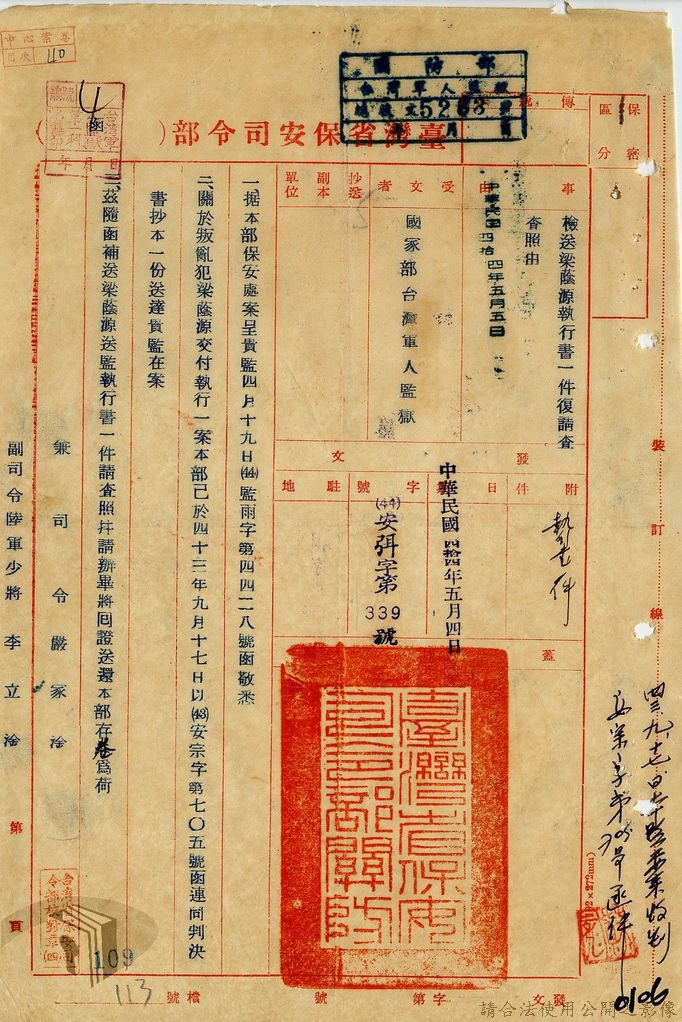 臺灣省保安司令部（ 函 ）
保密
區分
傳遞
國防部
台灣軍人監獄
5263
年月日
事由
檢送梁蔭源執行書一件復請查
查照由
中華民國四拾四年五月五日
受文者
國家部台灣軍人監獄
抄送
副本
單位
發文
附件
執書一件
日期
中華民國四拾四年五月四日
字號
(44)安弭字第
339
號
駐地
蓋
臺灣省保安司令部關防
一、据本部保安處案呈貴監四月十九日(44)監雨字第四四二八號函敬悉
二、關於叛亂犯梁蔭源交付執行一案本部已於四十三年九月十七日以(43)安宗字第七〇五號函連同判決
書抄本一份送達貴監在案
三、茲隨函補送梁蔭源送監執行書一件請查照并請辦畢將囘證送還本部存卷為荷
兼司令嚴家淦
副司令陸軍少將李立淦
第 頁
裝訂線
四三、九、十七日
安宗字第705號函件
0106
109
113
檔號
發文 字第 號
110
請合法使用公開之影像